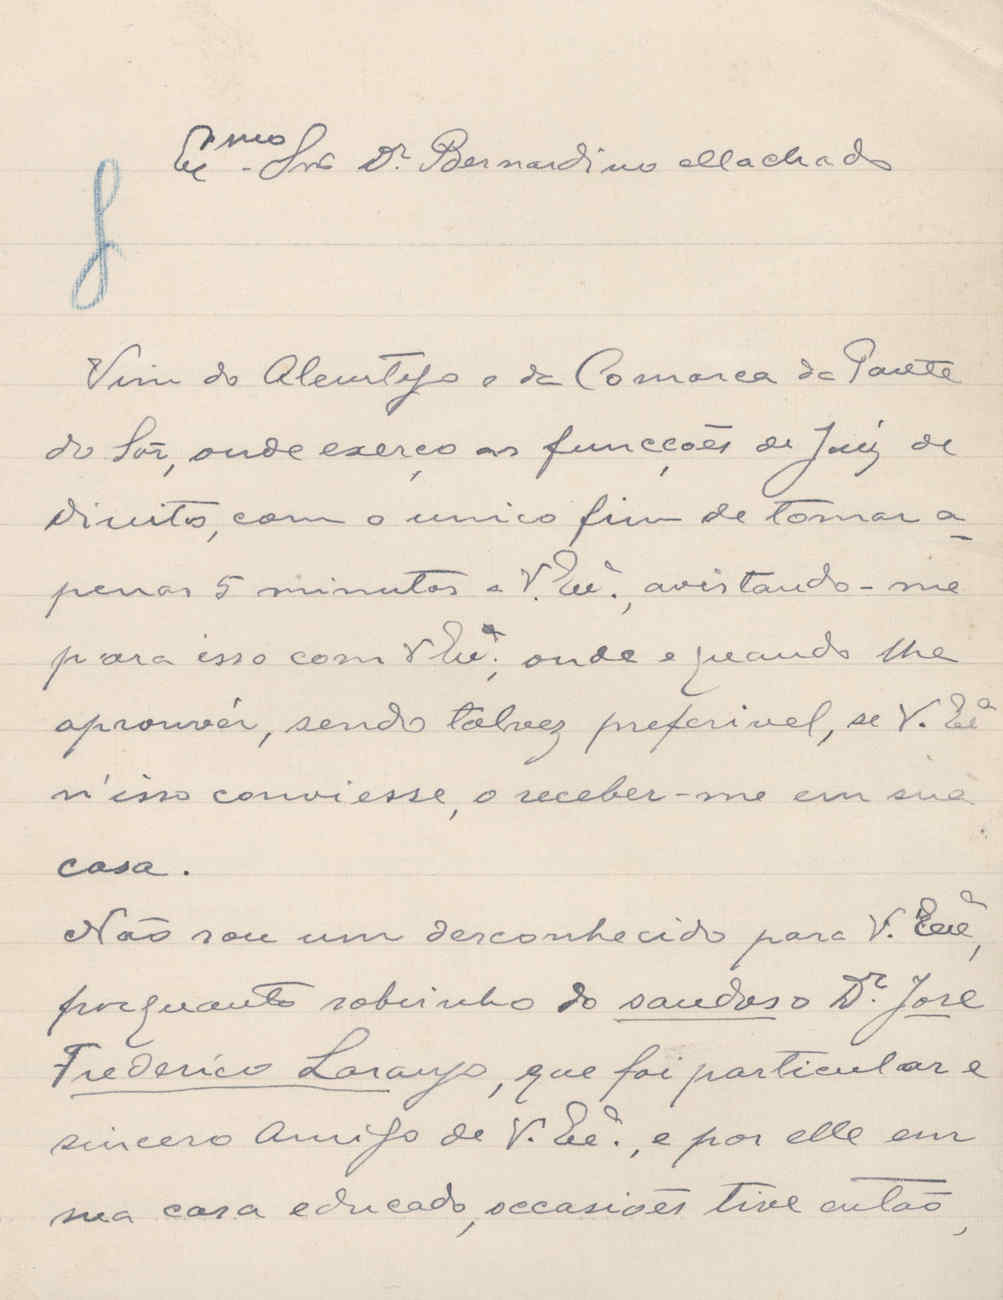 Ex.mo Snr Dr. Bernardino Machado
Vim do Alemtejo e da Comarca da Ponte
do Sôr, onde exerço as funcções de Juiz de
Direito, com o unico fim de tomar a-
penas 5 minutos a V. Exª., avistando-me
para isso com V Exª., onde e quando lhe
aprouvér, sendo talvez preferivel, se V. Exª
n'isso conviesse, o receber-me em sua
casa.
Não sou um desconhecido para V. Exª,
porquanto sobrinho do saudoso Dr. José
Frederico Laranjo, que foi particular e
sincero Amigo de V. Exª., e por elle em
sua casa educado, occasiões tive então,